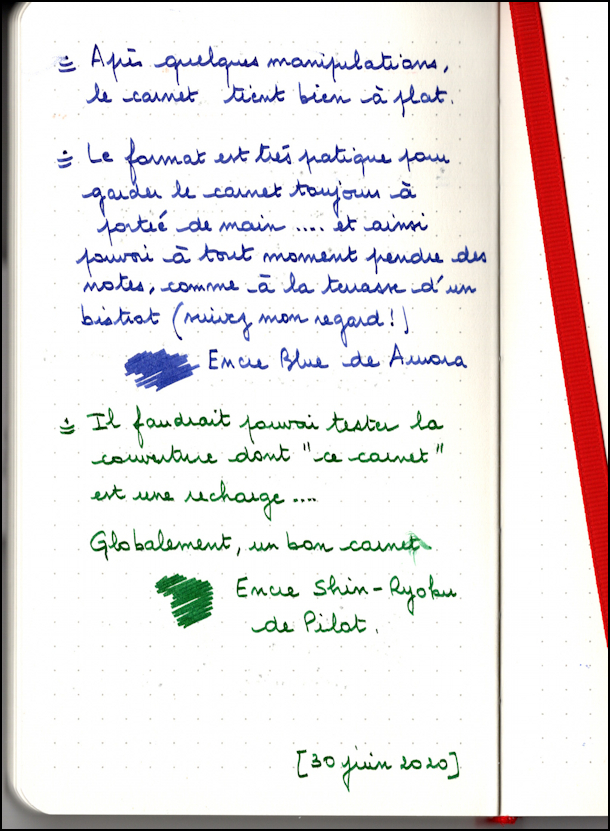 Après quelques manipulations,
le carnet tient bien à plat.
Le format est très pratique pour
garder le carnet toujours à
portée de main ..... et ainsi
pouvoir à tout moment prendre des
notes, comme à la terrasse d'un
bistrot (suivez mon regard!)
Encre Blue de Aurora
Il faudrait pouvoir tester la
couverture dont "ce carnet"
est une recharge ....
Globalement, un bon carnet
Encre Shin-Ryoku
de Pilot.
[30 juin 2020]